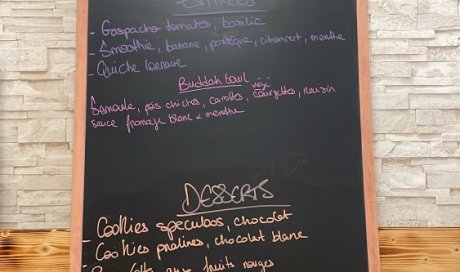 ENTRÉES
- Gaspacho tomates, basilic
- Smoothie, banane, pastèque, citron vert, menthe
- Quiche lorraine
Buddah bowl
végé
Semoule, pois chiches, carottes, courgettes, raisin
sauce fromage blanc & menthe
DESSERTS
- Cookies spéculoos, chocolat
- Cookies pralines, chocolat blanc
aux fruits rouges